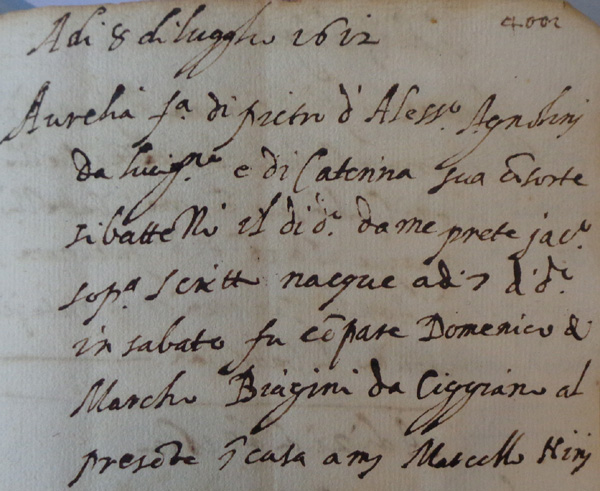 Adi 8 di luglio 1612
4001
Aurelia fa di pietro d'Alesso Agnolinj
da lucigno e di Caterina sua cõsorte
si battezzò il di do da me prete jaco
sopa scritto nacque adi 7 d do
in sabato fu cõpare Domenico di
Marcho Biagini da Ciggiano al
presẽte ĩ casa a mj Marcello Ninj